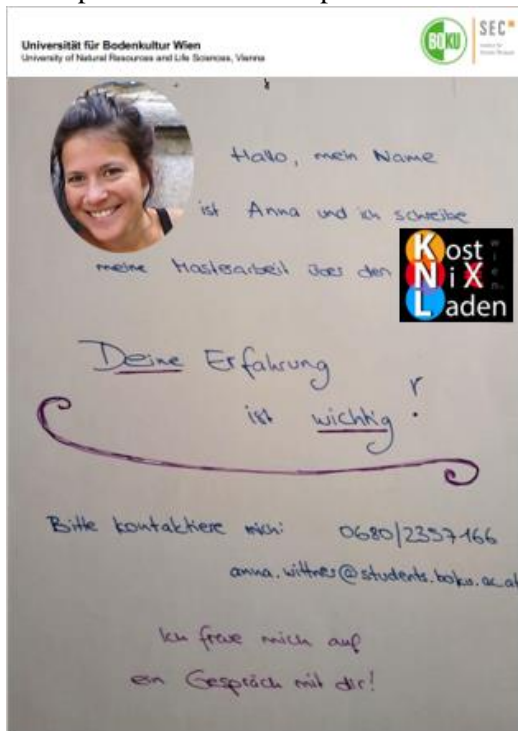 Universität für Bodenkultur Wien
University of Natural Resources and Life Sciences, Vienna
BOKU
SEC
Hallo, mein Name
ist Anna und ich schreibe
meine Masterarbeit über den
Kost
NiX
Laden
wien
Deine Erfahrung
ist wichtig!
Bitte kontaktiere mich: 0680/2357166
anna.wittner@students.boku.ac.at
Ich freue mich auf
ein Gespräch mit dir!